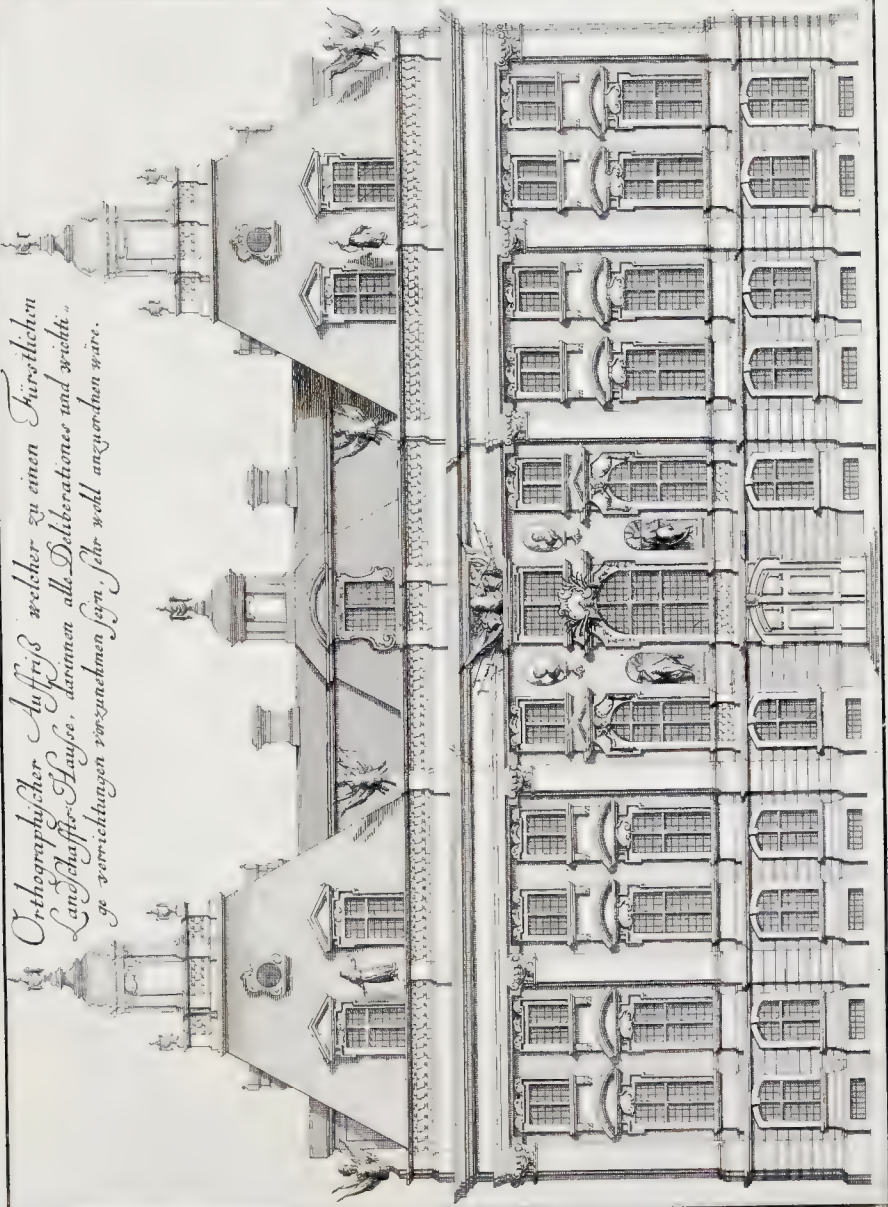 Orthographischer Auffriß welcher zu einen Fürstlichen
Landschaffts-Hauße, darinnen alle Deliberationes und wichti„
ge verrichtungen vorzunehmen seyn, sehr wohl anzuordnen wäre.